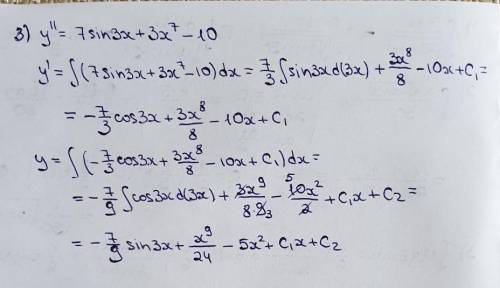 3) y'' = 7sin3x + 3x⁷ - 10
y' = ∫(7sin3x + 3x⁷ - 10)dx = 7/3 ∫sin3x d(3x) + 3x⁸/8 - 10x + C₁ =
= - 7/3 cos3x + 3x⁸/8 - 10x + C₁
y = ∫(- 7/3 cos3x + 3x⁸/8 - 10x + C₁)dx =
= - 7/9 ∫cos3x d(3x) + 3x⁹/8·9₃ - ⁵10x²/2 + C₁x + C₂ =
= - 7/9 sin3x + x⁹/24 - 5x² + C₁x + C₂